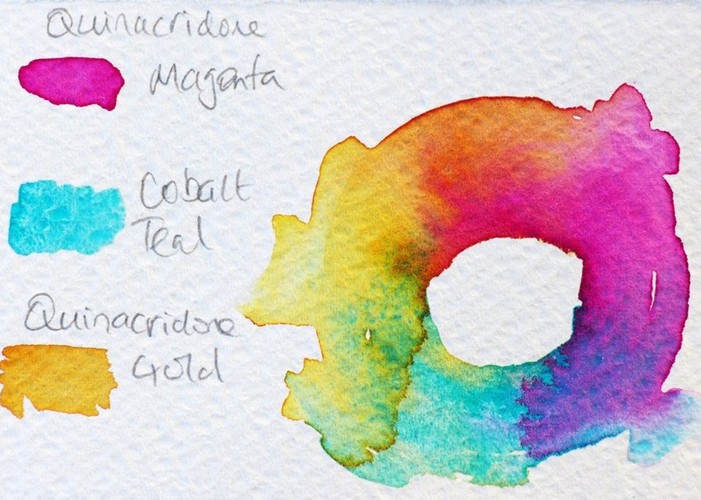 Quinacridone
Magenta
Cobalt
Teal
Quinacridone
Gold